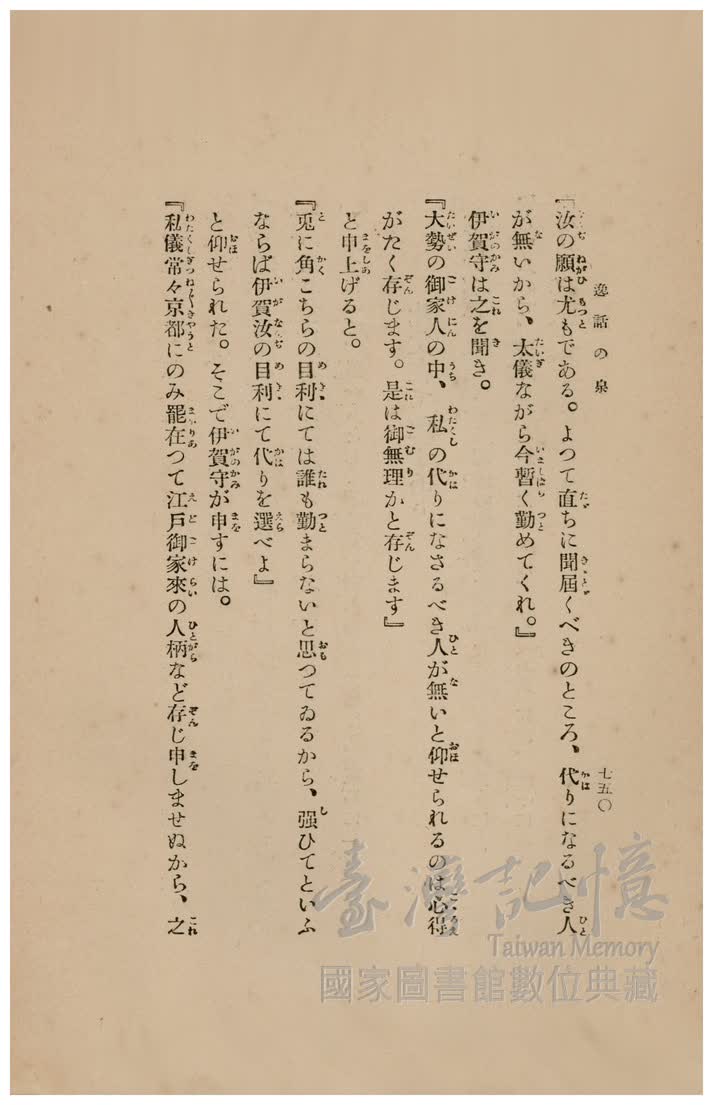 逸話の泉
七五〇
『汝の願は尤もである。よつて直ちに聞屆くべきのところ、代りになるべき人
が無いから、太儀ながら今暫く勤めてくれ。』
伊賀守は之を聞き。
『大勢の御家人の中、私の代りになさるべき人が無いと仰せられるのは心得
がたく存じます。是は御無理かと存じます』
と申上げると。
『兎に角こちらの目利にては誰も勤まらないと思つてゐるから、强ひてといふ
ならば伊賀汝の目利にて代りを選べよ』
と仰せられた。そこで伊賀守が申すには。
『私儀常々京都にのみ罷在つて江戶御家來の人柄など存じ申しませぬから、之
臺灣記憶
Taiwan Memory
國家圖書館數位典藏